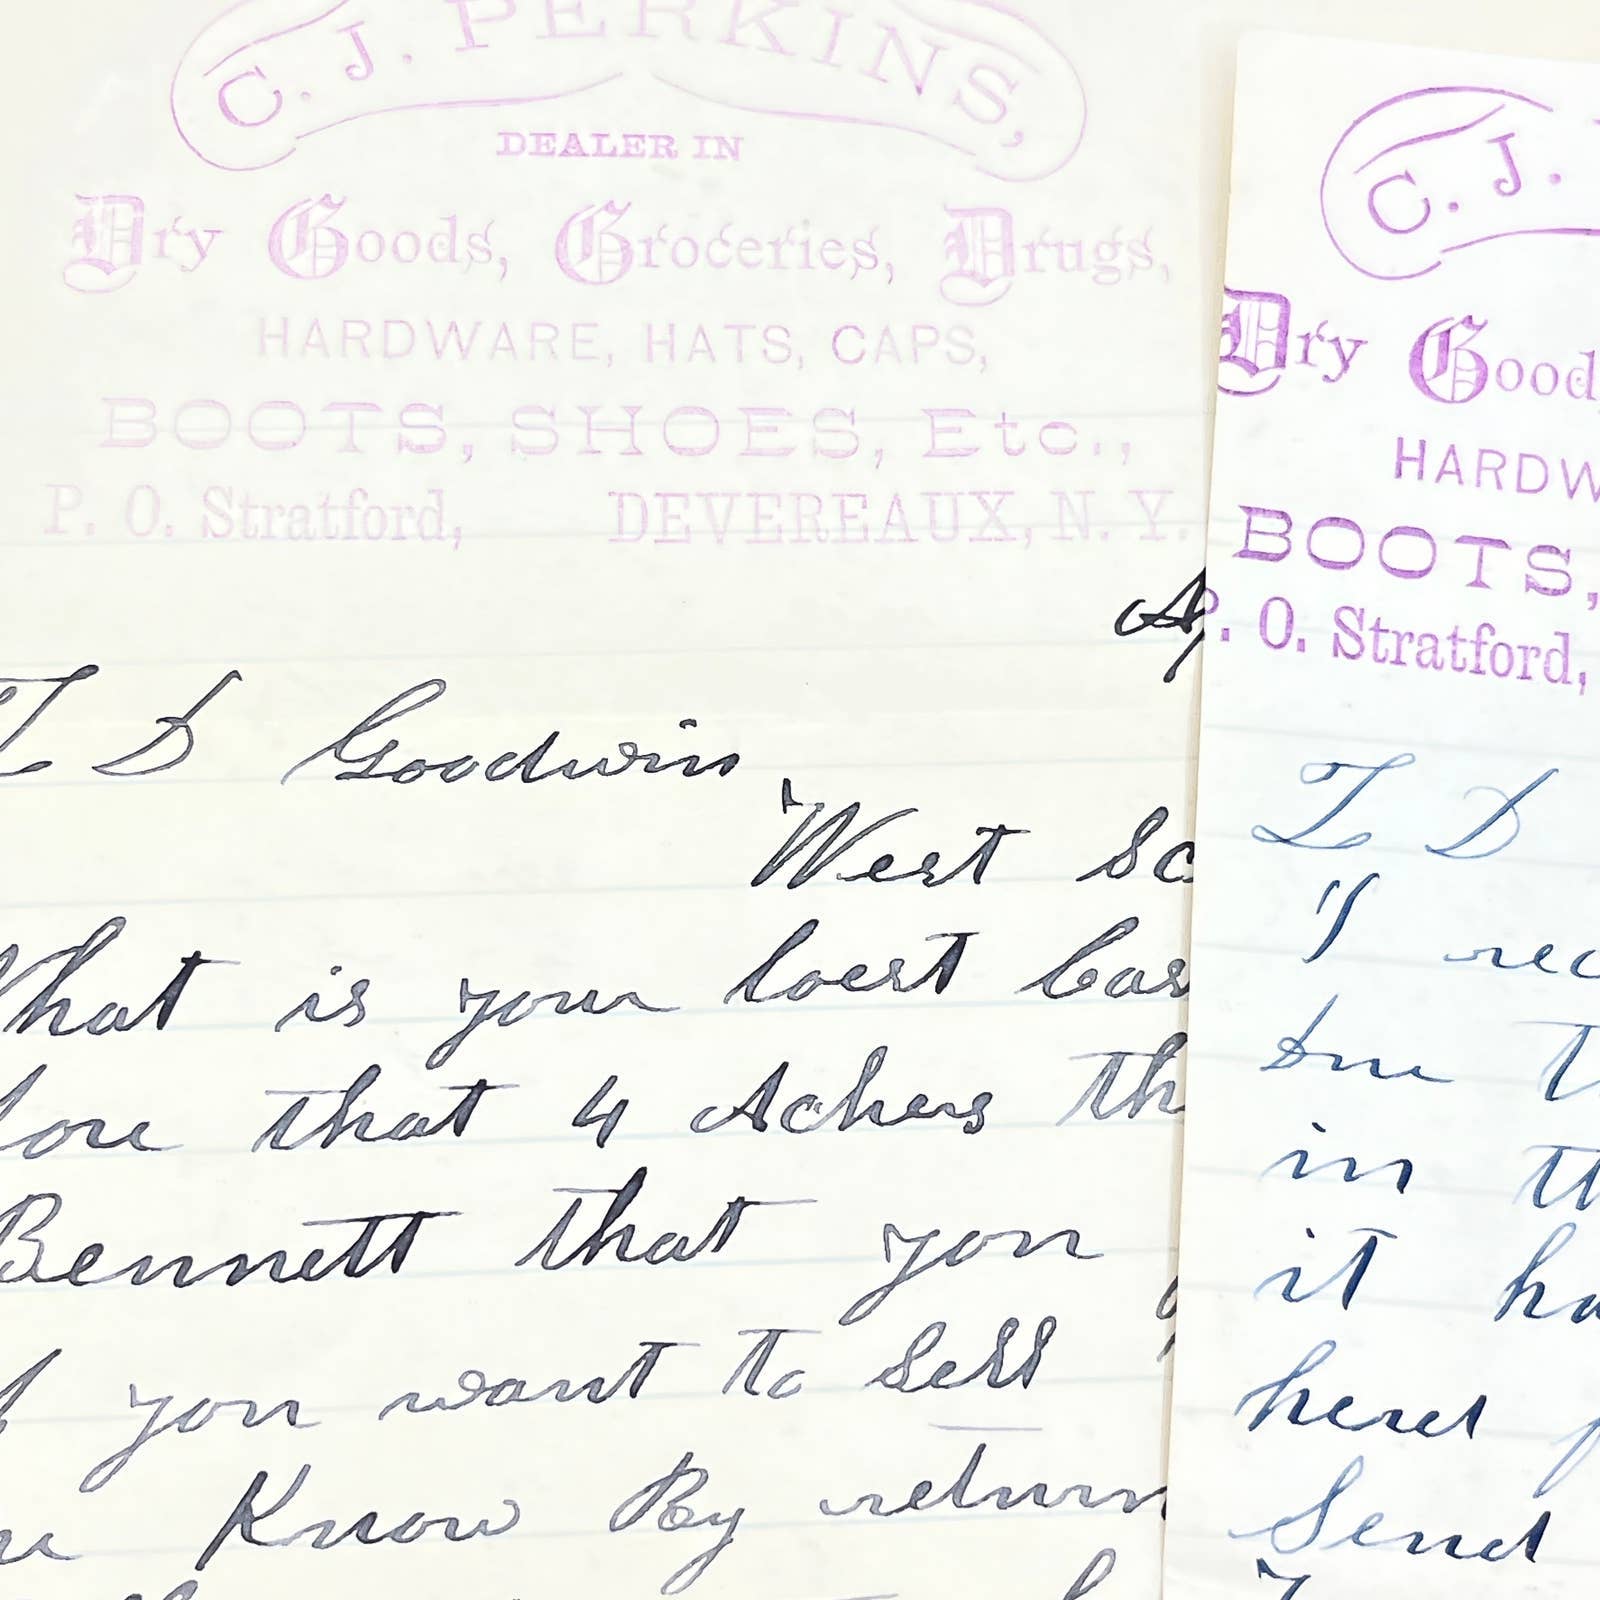 C. J. PERKINS,
DEALER IN
Dry Goods, Groceries, Drugs,
HARDWARE, HATS, CAPS,
BOOTS, SHOES, Etc.,
P. O. Stratford, DEVEREAUX, N. Y.
Ap
I D Goodwin
West Sc
What is your loest Cas
fore that 4 Achers th
Bennett that you
if you want to Sell
me Know By return
C. J.
Dry Good
HARDW
BOOTS,
P. O. Stratford,
I D
I rec
Due
in th
it ha
herd
Send